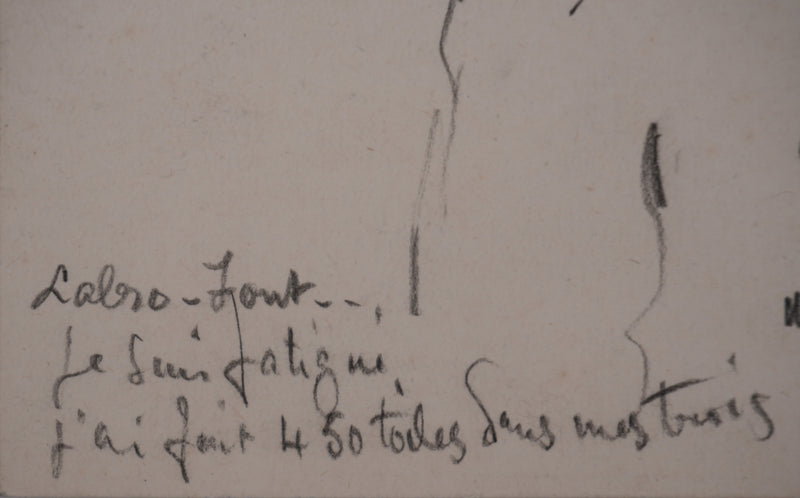 Labro-Font--.
Je suis fatigué,
j'ai fait 450 toiles dans mes trois